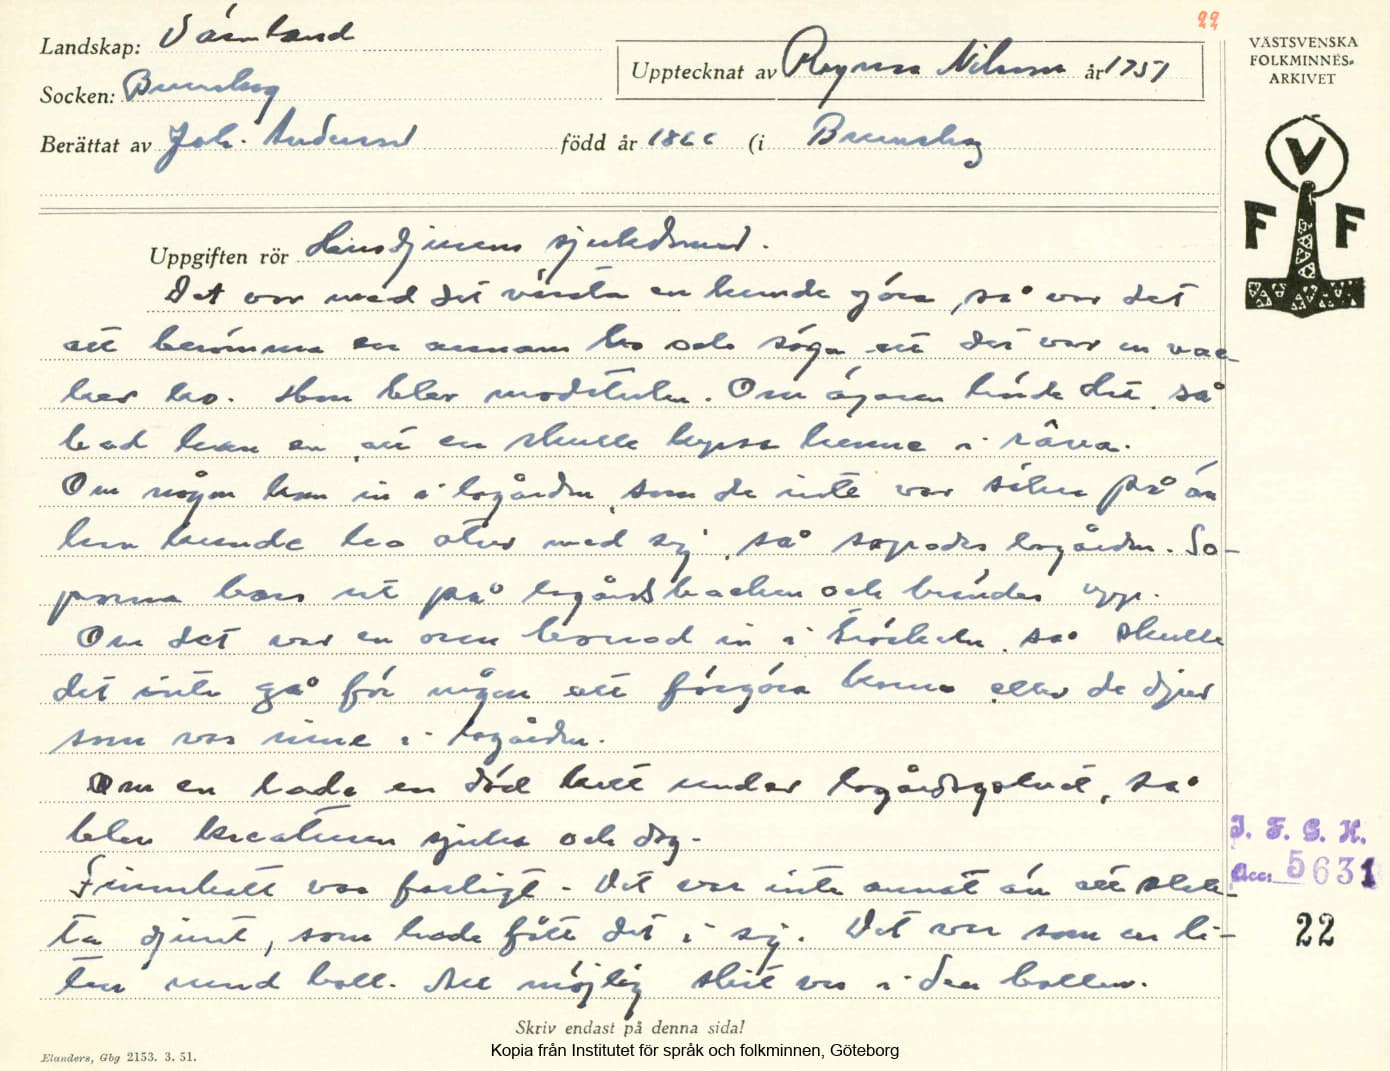 22
Landskap: Värmland
VÄSTSVENSKA
FOLKMINNES-
ARKIVET
Upptecknat av Ragnar Nilsson år 1951
Socken: Brunskog
Berättat av Joh. Andersson född år 1866 (i Brunskog
V
F F
Uppgiften rör Husdjurens sjukdomar.
Det var med det värsta en kunde göra, så var det
att berömma en annans ko och säga att det var en vac-
ker ko. Hon blev modstulen. Om ägaren hörde det, så
bad han en, att en skulle kyssa henne i röva.
Om någon kom in i logården, som de inte var säker på än
han kunde ha otur med sej, så sopades logården. So-
porna bars ut på logårdsbacken och brändes upp.
Om det var en orm borrad in i tröskeln, så skulle
det inte gå för någon att förgöra korna eller de djur
som var inne i logården.
Om en hade en död katt under logårdsgolvet, så
blev kreaturen sjuka och dog.
Finnskott var farligt. Det var inte annat än att slak-
ta djuret, som hade fått det i sej. Det var som en li-
ten rund boll. All möjlig skit var i den bollen.
J. F. G. H.
Acc: 5631
22
Skriv endast på denna sida!
Elanders, Gbg 2153. 3. 51.
Kopia från Institutet för språk och folkminnen, Göteborg